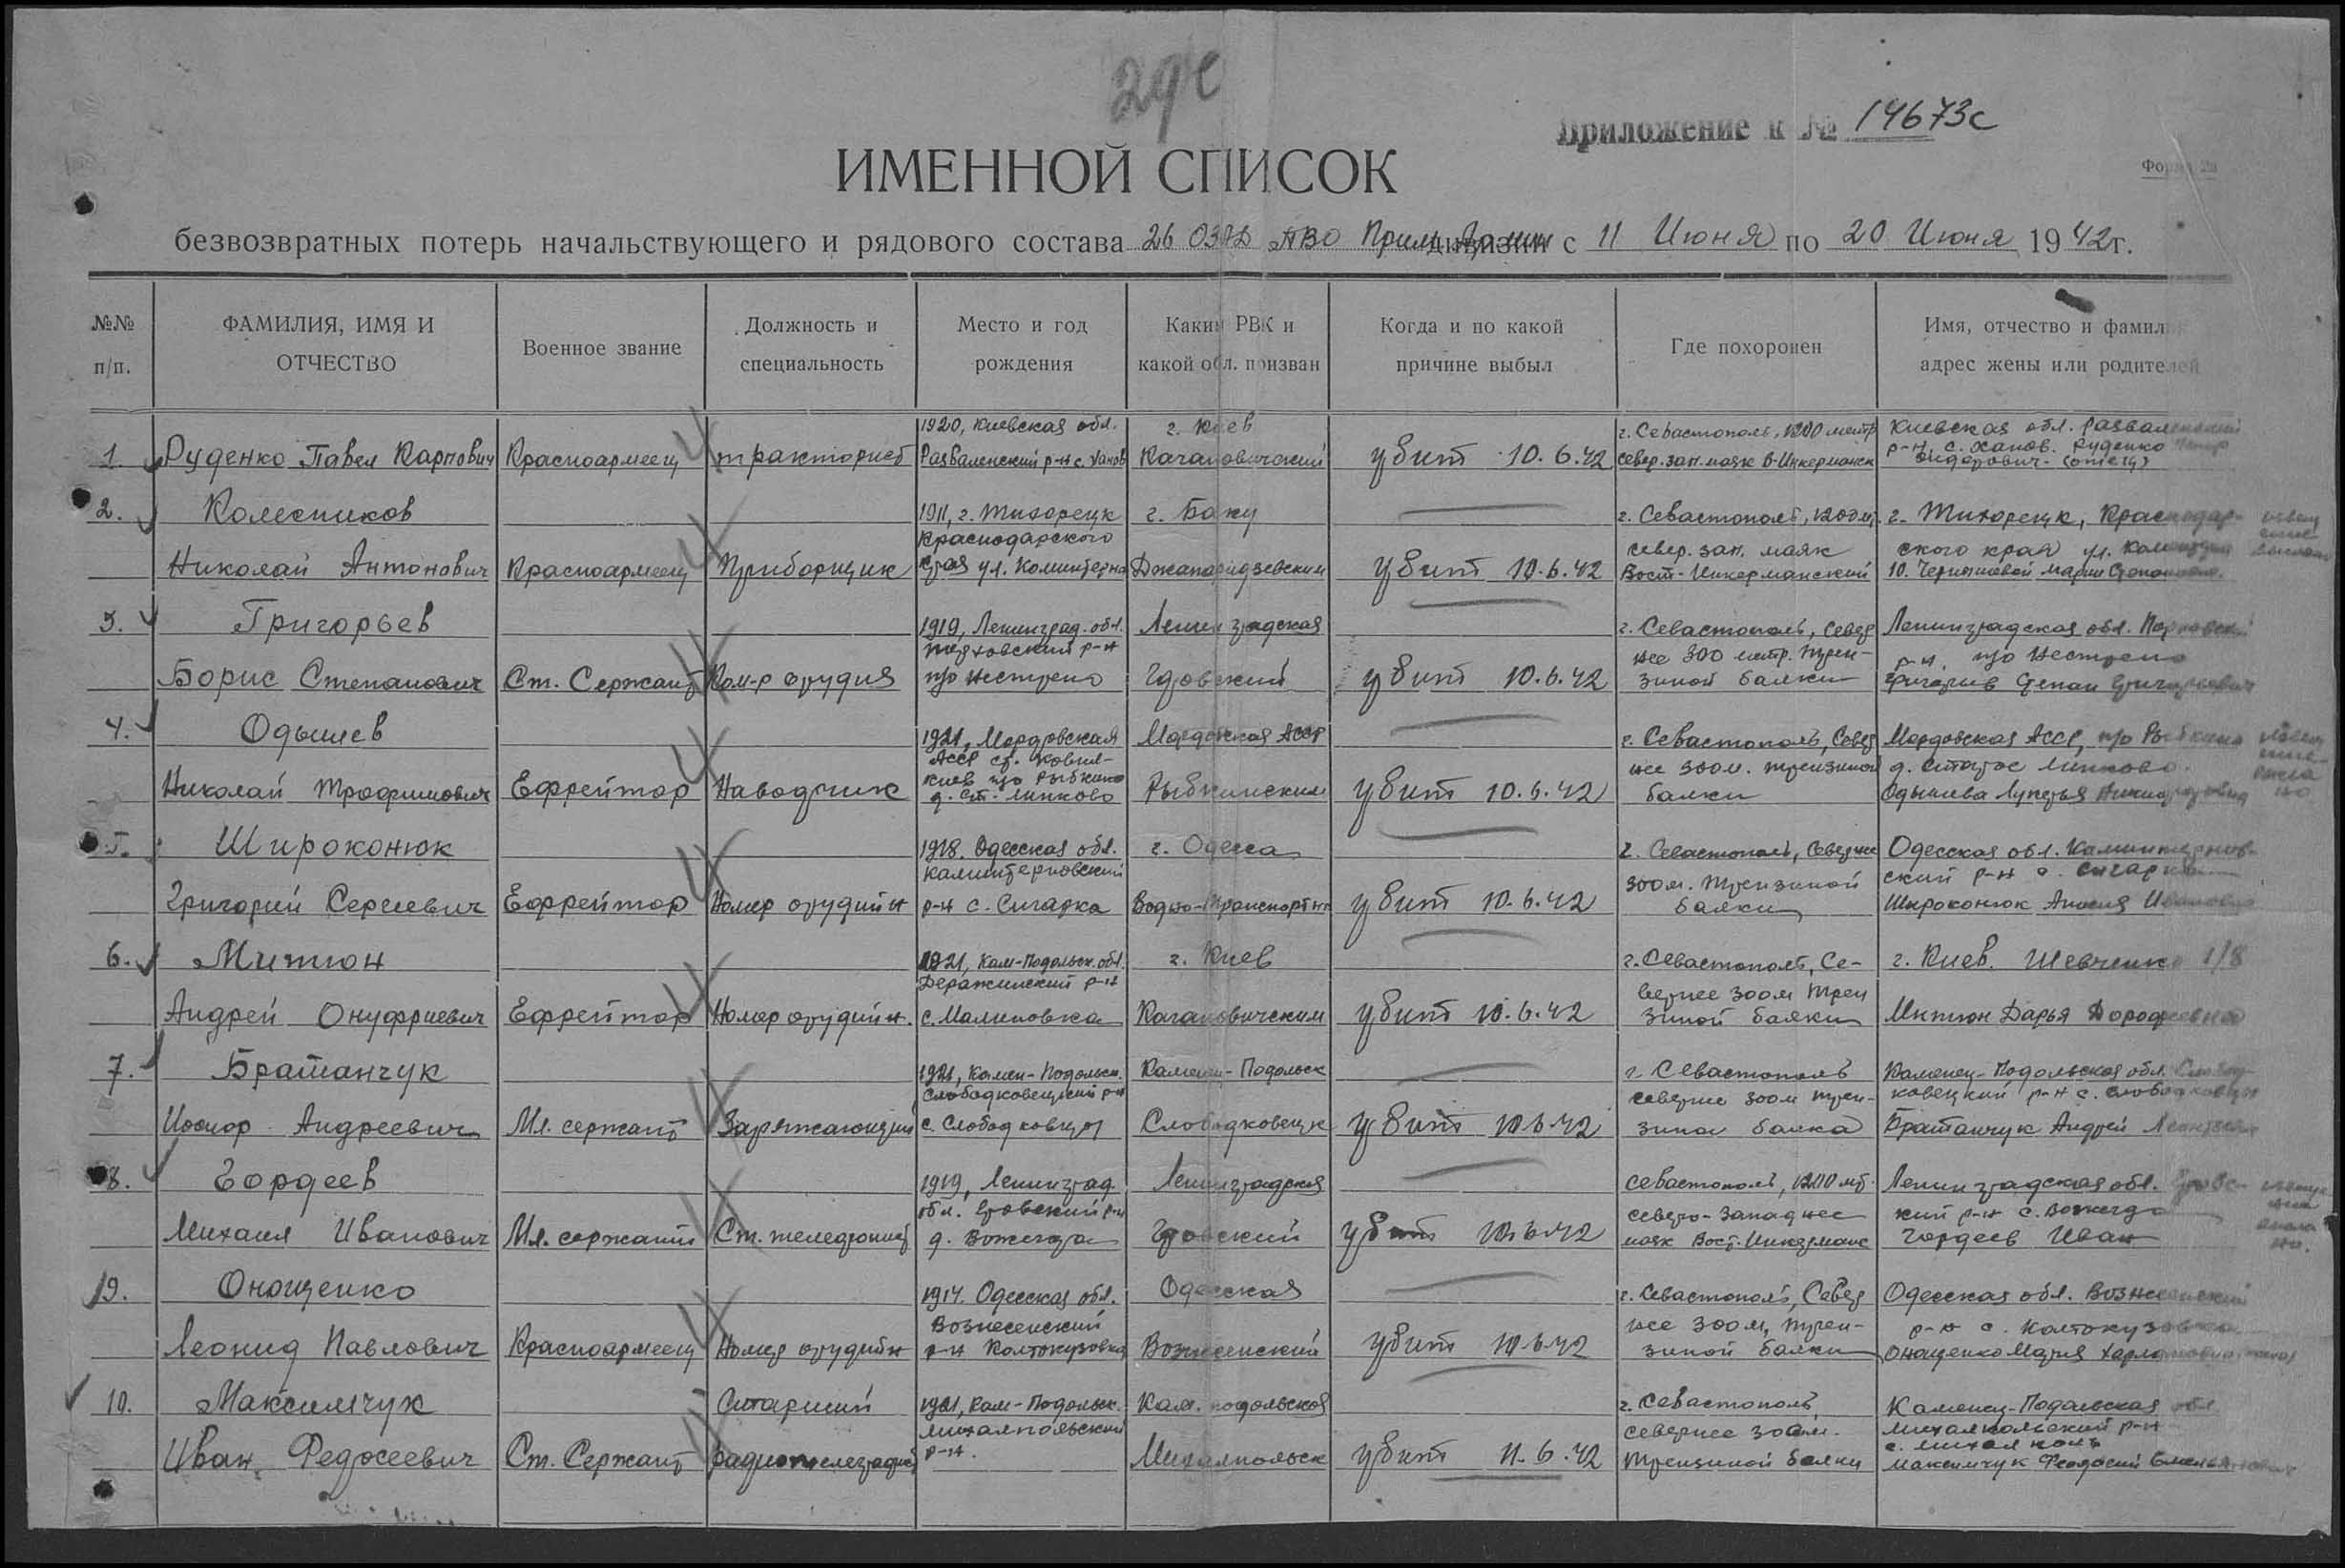 29с
Приложение к № 14673с
ИМЕННОЙ СПИСОК
безвозвратных потерь начальствующего и рядового состава 26 ОЗАД ПВО Прим. Армии дивизии с 11 Июня по 20 Июня 1942г.
№№ п/п.
ФАМИЛИЯ, ИМЯ И ОТЧЕСТВО
Военное звание
Должность и специальность
Место и год рождения
Каким РВК и какой обл. призван
Когда и по какой причине выбыл
Где похоронен
Имя, отчество и фамил
адрес жены или родителей
1. Руденко Павел Карпович
Красноармеец
тракторист
1920, Киевская обл.
Разваленский р-н с. Ханов
г. Киев
Кагановичский
убит 10.6.42
г. Севастополь, 1200 метр
север. зап. маяк В-Инкерманск
Киевская обл. Разваленский
р-н, с. Ханов. Руденко
(отец)
2. Колесников
Николай Антонович
Красноармеец
Приборщик
1911, г. Тихорецк
Краснодарского
края ул. Коминтерна
г. Баку
Джапаридзевским
убит 10.6.42
г. Севастополь, 1200 м.
север. зап. маяк
Вост-Инкерманский
г. Тихорецк, Краснодар-
ского края ул. Коминтерна
10. Чернышевой Марии
3. Григорьев
Борис Степанович
Ст. Сержант
Ком-р орудия
1919, Ленинград. обл.
р-н
п/о
Ленинградская
Гдовский
убит 10.6.42
г. Севастополь, Север
нее 300 метр. Трен-
зиной балки
Ленинградская обл.
р-н. п/о
Григорьев Степан Григорьевич
4. Одышев
Николай Трофимович
Ефрейтор
Наводчик
1921, Мордовская
АССР ст. Ковыл-
кино п/о Рыбкино
д. ст. Линково
Мордовская АССР
Рыбкинским
убит 10.6.42
г. Севастополь, Север
нее 300м. трензиной
балки
Мордовская АССР, п/о Рыбкино
д. Старое Линково.
Одышева Лукерья
5. Широконюк
Григорий Сергеевич
Ефрейтор
Номер орудийн
1918. Одесская обл.
Каминтерновский
р-н с. Сигарка
г. Одесса
Водно-Транспортн
убит 10.6.42
г. Севастополь, Севернее
300м. Трензиной
балки
Одесская обл. Каминтернов-
ский р-н с. Сигарка
Широконюк Анисия Ивановна
6. Митюн
Андрей Онуфриевич
Ефрейтор
Номер орудийн.
1921, Кам-Подольск. обл.
Деражнянский р-н
с. Малиновка
г. Киев
Кагановичским
убит 10.6.42
г. Севастополь, Се-
вернее 300м Трен
зиной балки
г. Киев. Шевченко 1/8
Митюн Дарья Дорофеевна
7. Братанчук
Андреевич
Мл. сержант
Заряжающий
1921, Камен-Подольск.
Слободковецкий р-н
с. Слободковцы
Каменец-Подольск
Слободковецк
убит 10.6.42
г. Севастополь
севернее 300м трен-
зина балка
Каменец-Подольская обл. Слобод-
ковецкий р-н с. Слободковцы
Братанчук Андрей
8. Гордеев
Михаил Иванович
Мл. сержант
Ст. телефонист
1919, Ленинград.
обл. Гдовский р-н
д.
Ленинградская
Гдовский
убит 10.6.42
Севастополь, 1200 мт.
северо-западнее
маяк Вост. Инкерманс
Ленинградская обл. Гдовс-
кий р-н с.
Гордеев Иван
9. Онощенко
Леонид Павлович
Красноармеец
Номер орудийн
1914. Одесская обл.
Вознесенский
р-н Колтокузовка
Одесская
Вознесенский
убит 10.6.42
г. Севастополь, Север
нее 300м, трен-
зиной балки
Одесская обл. Вознесенский
р-н с. Колтокузовка
Онощенко Мария
10. Максимчук
Иван Федосеевич
Ст. Сержант
Старший
радиотелеграфист
1921, Кам-Подольск.
Михалпольский
р-н.
Кам. Подольская
Михалпольск
убит 11.6.42
г. Севастополь
севернее 300м.
Трензиной балки
Каменец-Подольская обл
Михалпольский р-н
с. Михалполь
Максимчук Феодосий